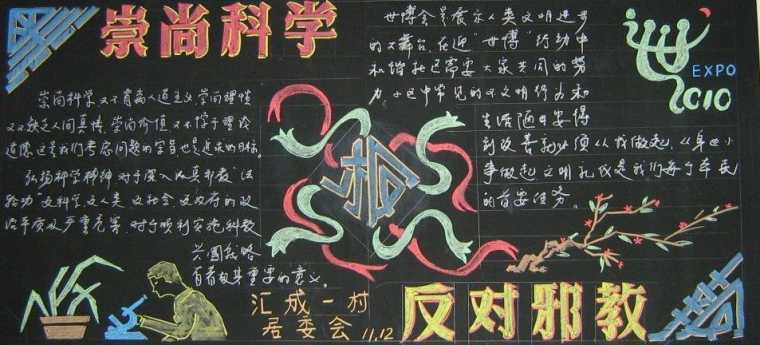 崇尚科学
崇尚科学又不背离人道主义,崇尚理性
又不缺乏人间真情,崇尚价值又不悖于理论
道德这是我们考虑问题的学旨也是追求的目标。
弘扬科学精神对于深入认真邪教"法
轮功"反科学反人类反社会反政府的政
治本质及严重危害,对于顺利实施科教
兴国战略
有着极其重要的意义。
汇成一村
居委会
11.12
世博会是展示人类文明进步
的大舞台,在迎"世博"行动中
和谐社区需要大家共同的努
力,小区中常见的不文明行为和
生活陋习要得
到改善就必须从我做起,从身边小
事做起文明礼仪是我们每个居民
的首要任务。
EXPO
2010
反对邪教